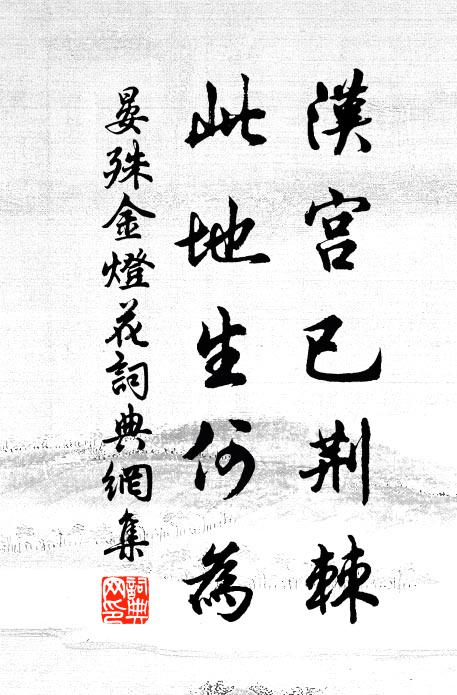 漢宮已荆棘
此地生何為
晏殊金燈花詞典網集
詞典
网印